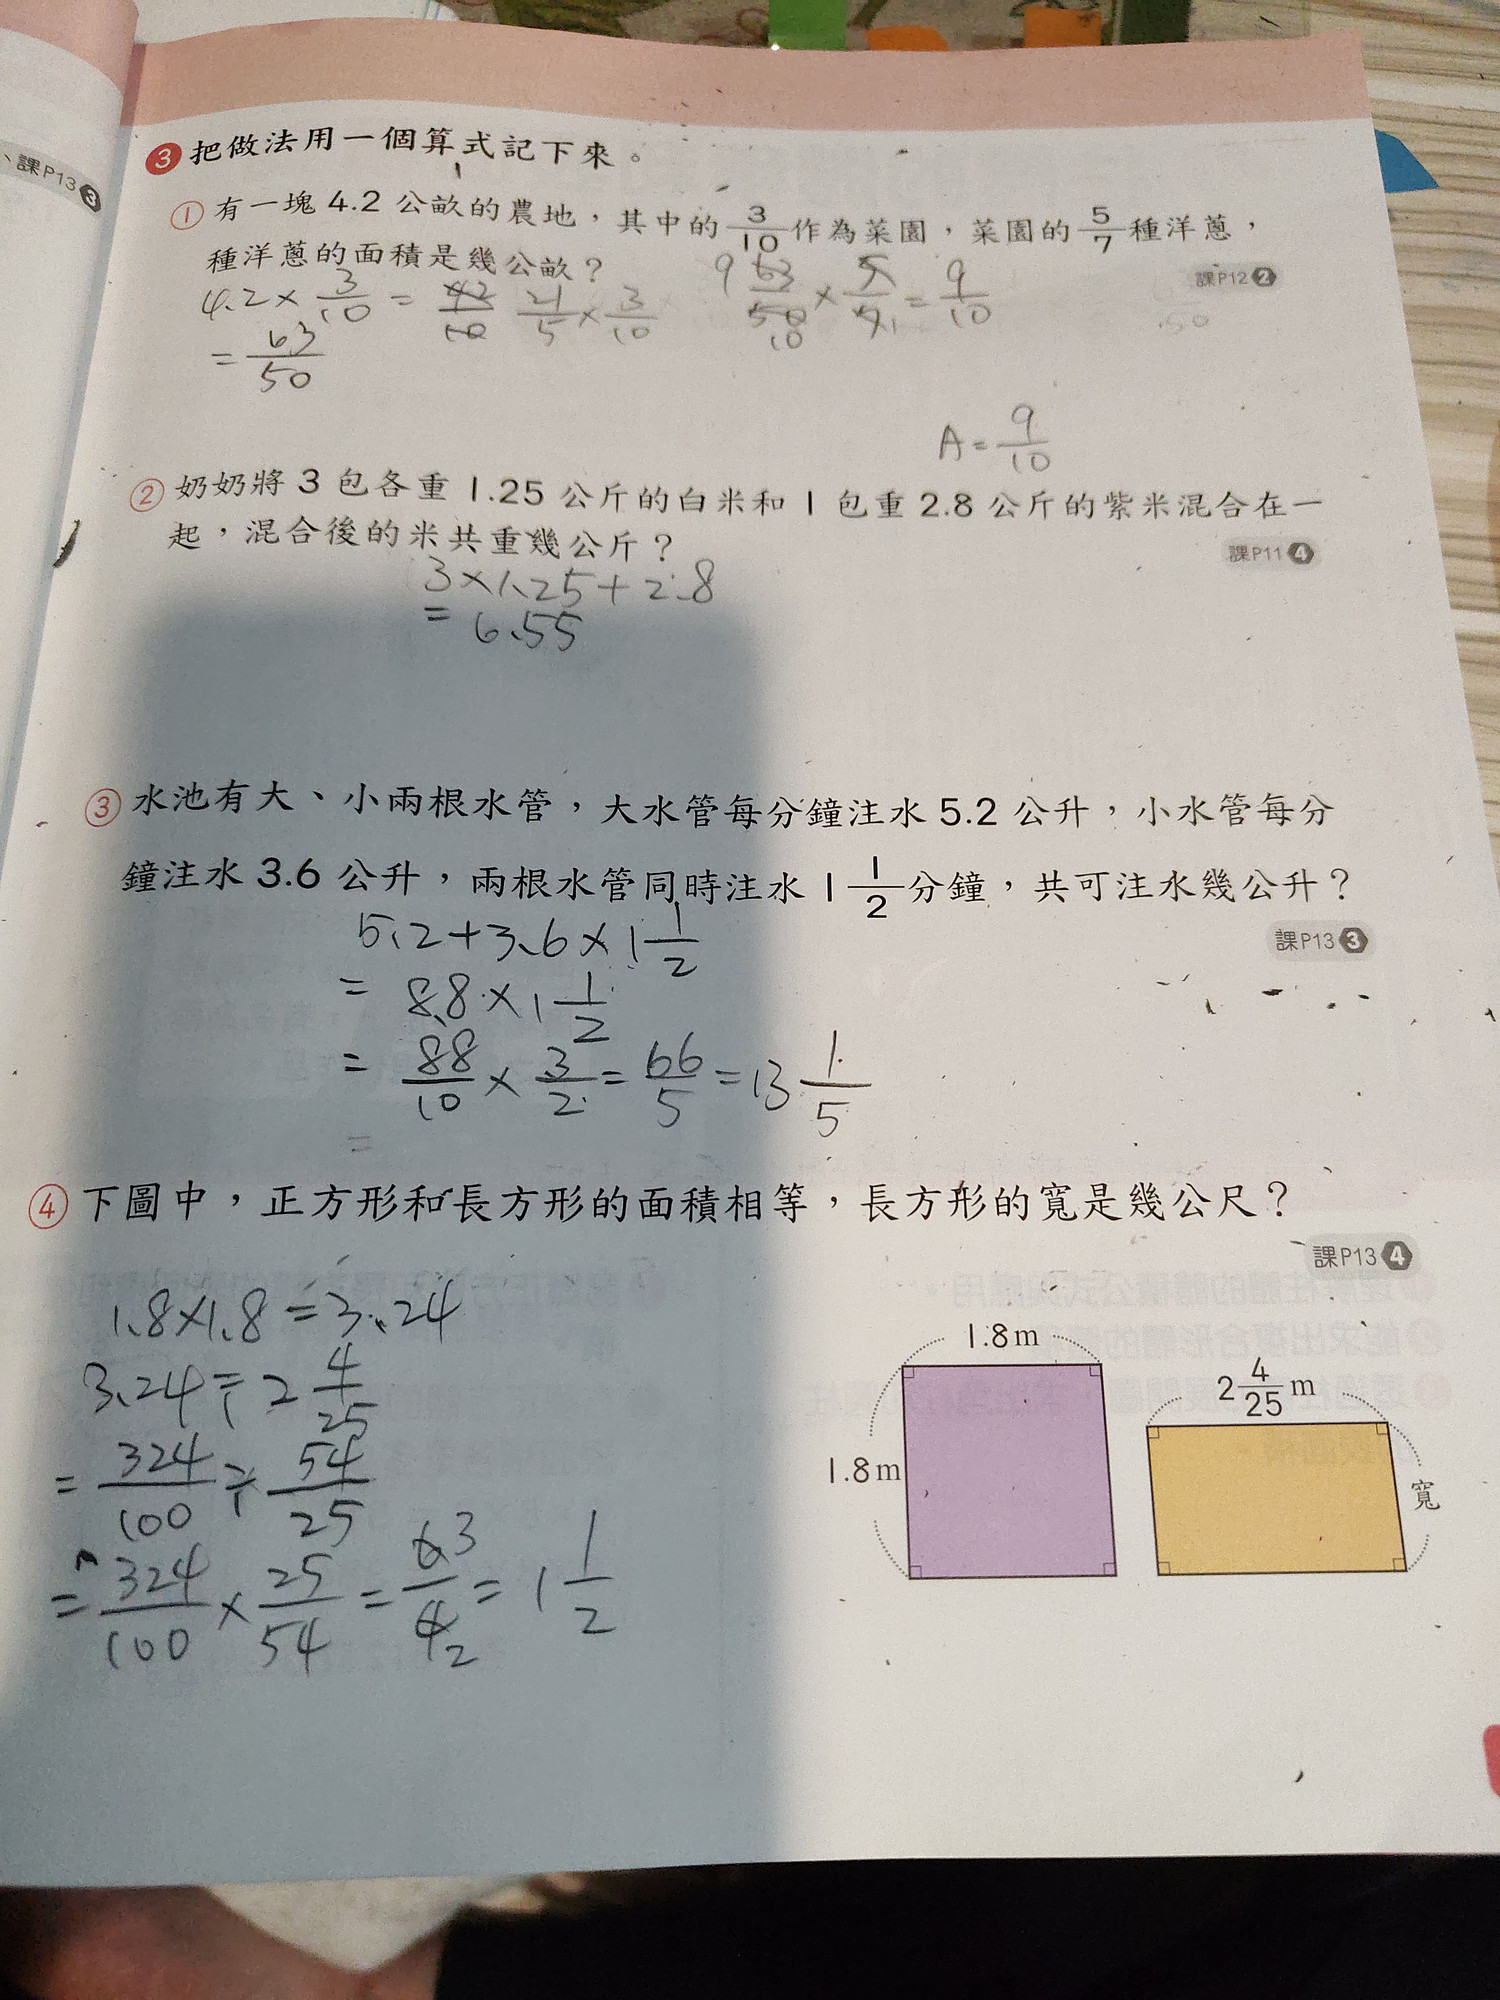 、課P13 3
3 把做法用一個算式記下來。
① 有一塊 4.2 公畝的農地，其中的 3/10 作為菜園，菜園的 5/7 種洋蔥，
種洋蔥的面積是幾公畝？
課P12 2
4.2 × 3/10 = 42/10 21/5 × 3/10
9 63/50 10 × 5/7 1 = 9/10
= 63/50
A = 9/10
② 奶奶將 3 包各重 1.25 公斤的白米和 1 包重 2.8 公斤的紫米混合在一
起，混合後的米共重幾公斤？
課P11 4
3 × 1.25 + 2.8
= 6.55
③ 水池有大、小兩根水管，大水管每分鐘注水 5.2 公升，小水管每分
鐘注水 3.6 公升，兩根水管同時注水 1 1/2 分鐘，共可注水幾公升？
課P13 3
5.2 + 3.6 × 1 1/2
= 8.8 × 1 1/2
= 88/10 × 3/2 = 66/5 = 13 1/5
=
④ 下圖中，正方形和長方形的面積相等，長方形的寬是幾公尺？
課P13 4
1.8 × 1.8 = 3.24
3.24 ÷ 2 4/25
= 324/100 ÷ 54/25
= 324/100 × 25/54 = 6 3/4 2 = 1 1/2
1.8 m
1.8 m
2 4/25 m
寬